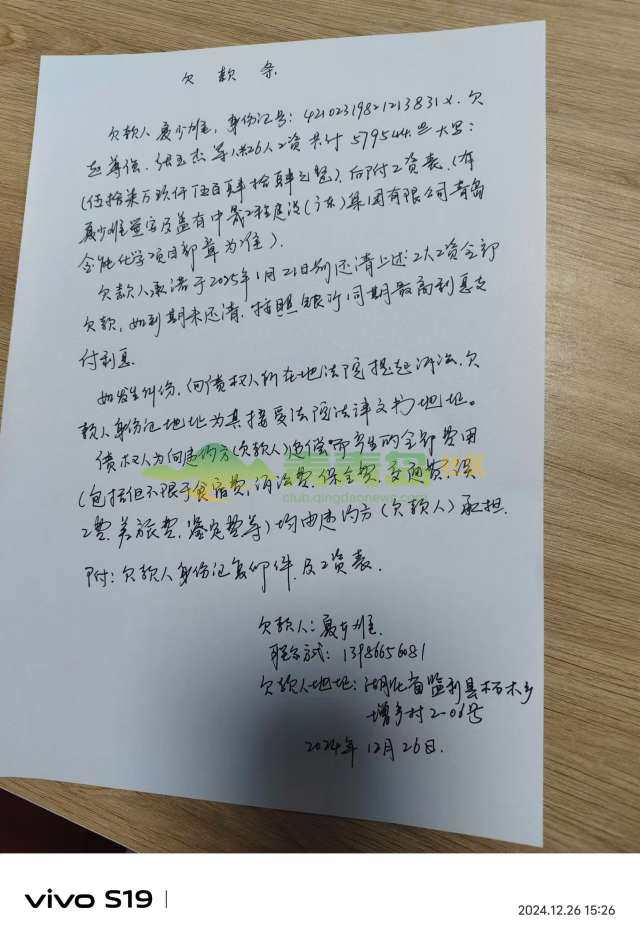 欠款条
欠款人夏少雄,身份证号:42102319821213831X.欠
等共26人工资共计579544.元大写:
(伍拾柒万玖仟伍佰肆拾肆元整),向附工资表,(有
夏少雄签字及盖有中晟工程建设(广东)集团有限公司青岛
金能化学项目部章为准)。
欠款人承诺于2025年1月21日前还清上述工人工资全部
欠款,如到期未还清.按照银行同期最高利息支
付利息.
如发生纠纷,向债权人所在地法院提起诉讼,欠
款人身份证地址为其接受法院法律文书地址。
债权人为向违约方(欠款人)追偿而产生的全部费用
(包括但不限于食宿费,诉讼费,保全费,交通费,误
工费,差旅费,鉴定费等)均由违约方(欠款人)承担.
附:欠款人身份证复印件,及工资表.
青青岛社区
club.qingdaonews.com
欠款人:夏少雄.
联系方式:13986656081
欠款人地址:湖北省监利县柘木乡
增乡村2-06号
2024年12月26日.
vivo S19
2024.12.26 15:26